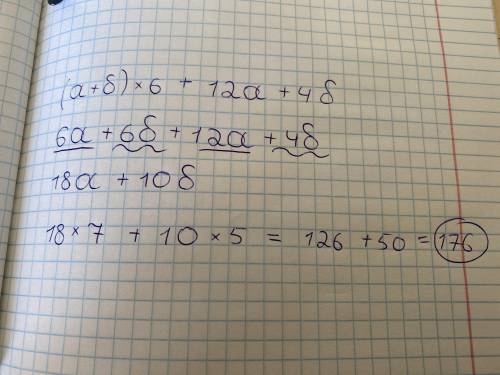 (a+б)×6 + 12a + 4б
6a + 6б + 12a + 4б
18a + 10б
18 × 7 + 10 × 5 = 126 + 50 = 176